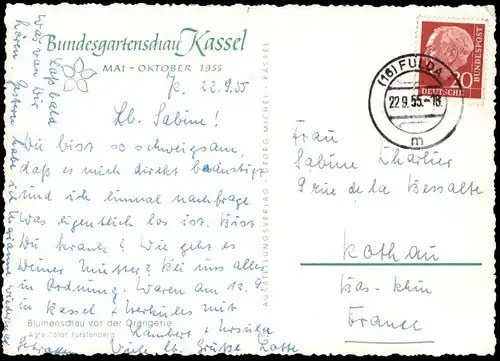 Bundesgartenschau Kassel
MAI - OKTOBER 1955
22.9.55
Lb. Sabine!
Du bist so schweigsam,
daß es mich direkt beängstigt
und ich einmal nachfrage
was eigentlich los ist. Bist
Du krank? Wie geht es
Deiner Mutter? Bei uns alles
in Ordnung. Waren am 12.9.
in Kassel + Herkules mit
Lambert + Ursula
Viele lb. Grüße Lotte
Laß bald
was von Dir
hören. Gestern habe ich Marianne
Blumenschau vor der Orangerie
Agfa-Color Fürstenberg
AUSSTELLUNGSVERLAG GEORG MICHEL, KASSEL
(16) FULDA
22.9.55.-18
m
20
DEUTSCHE BUNDESPOST
Frau
Sabine Charlier
9 rue de la
Rothau
Bas-Rhin
France